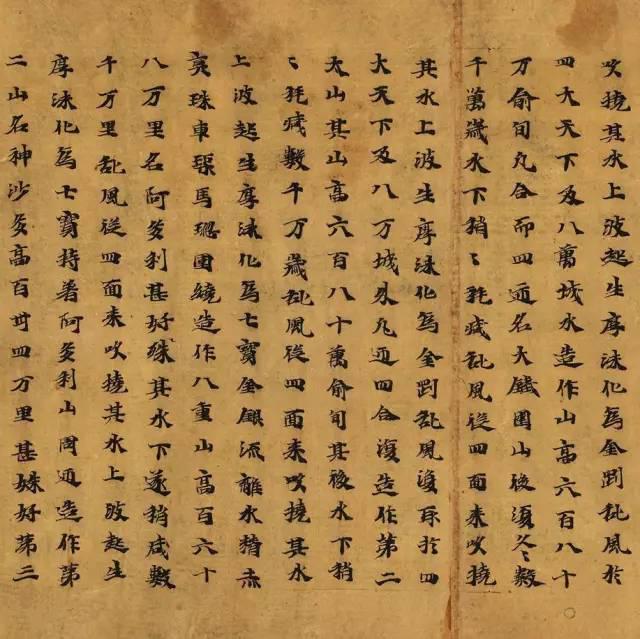 吹撓其水上波起生厚沫化為金剛亂風於
四大天下及八萬城水造作山高六百八十
万俞旬丸合而四迊名大鐵圍山後復久〻數
千萬歲水下稍〻耗減亂風從四面來吹撓
其水上波生厚沫化為金剛亂風復取於四
大天下及八万城外凡迊四合復造作第二
大山其山高六百八十萬俞旬其後水下稍
〻耗減數千万歲亂風從四面來吹撓其水
上波起生厚沫化為七寶金銀流離水精赤
真珠車璖馬瑙圍繞造作八重山高百六十
八万里名阿多利甚好殊其水下遂稍減數
千万里亂風從四面來吹撓其水上波起生
厚沫化為七寶持著阿多利山周迊造作第
二山名神沙多高百卅四万里甚姝好第三